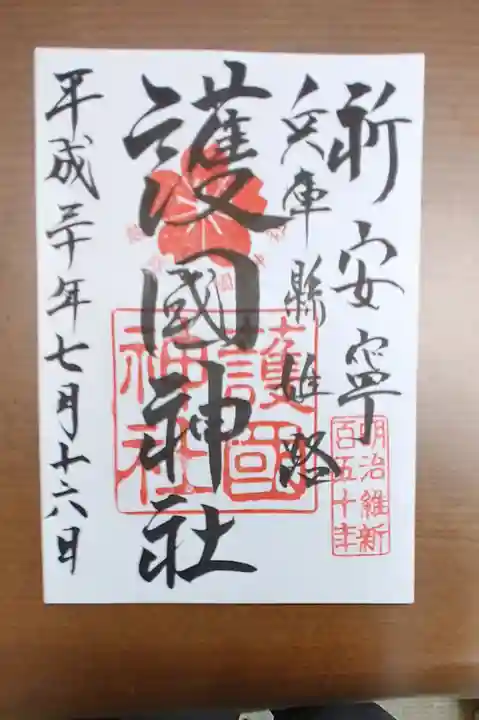 祈安寧
兵庫縣姫路
護國神社
平成三十年七月十六日
護國
神社
明治維新
百五十年